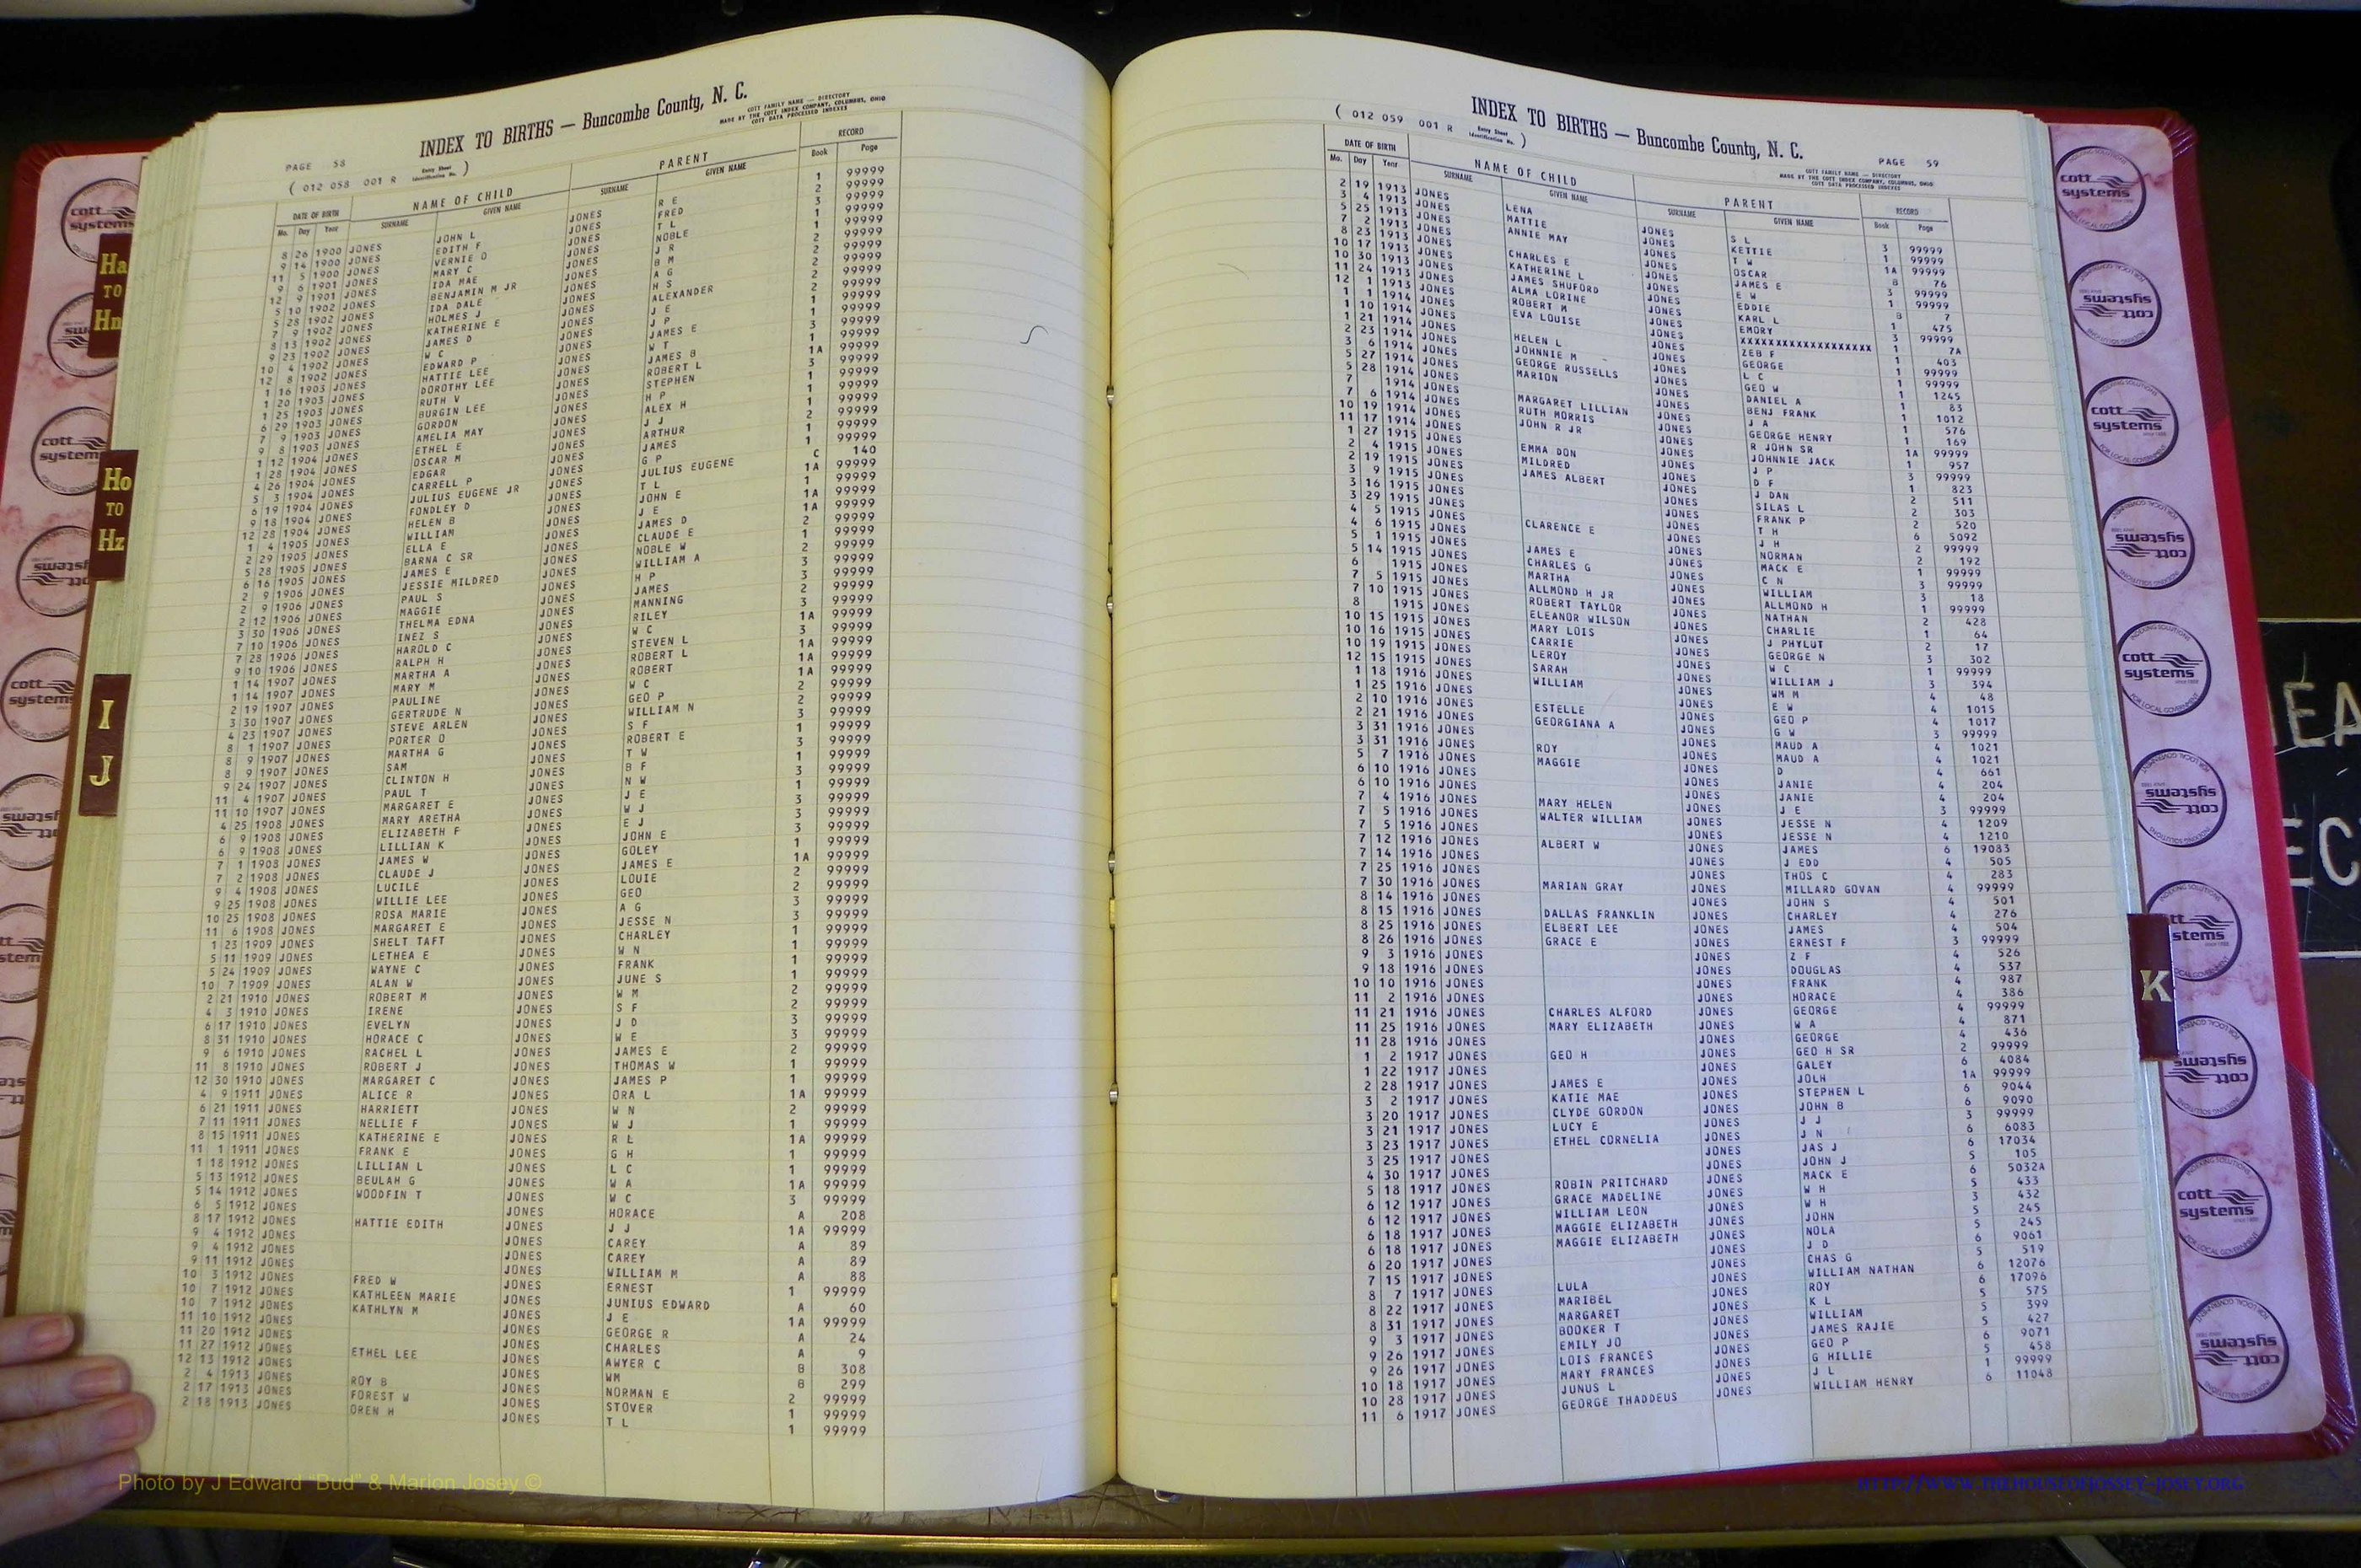 INDEX TO BIRTHS — Buncombe County, N. C.
COTT FAMILY NAME — DIRECTORY
MADE BY THE COTT INDEX COMPANY, COLUMBUS, OHIO
COTT DATA PROCESSED INDEXES
PAGE 58
( 012 058 001 R Entry Sheet Identification No. )
DATE OF BIRTH NAME OF CHILD PARENT RECORD
Mo. Day Year SURNAME GIVEN NAME SURNAME GIVEN NAME Book Page
8 26 1900 JONES JOHN L JONES R E 1 99999
9 14 1900 JONES EDITH F JONES FRED 2 99999
11 5 1900 JONES VERNIE O JONES T L 3 99999
9 6 1901 JONES MARY C JONES NOBLE 1 99999
12 9 1901 JONES IDA MAE JONES J R 1 99999
5 10 1902 JONES BENJAMIN M JR JONES B M 2 99999
5 28 1902 JONES IDA DALE JONES A G 2 99999
7 9 1902 JONES HOLMES J JONES H S 2 99999
8 13 1902 JONES KATHERINE E JONES ALEXANDER 2 99999
9 23 1902 JONES JAMES D JONES J E 2 99999
10 4 1902 JONES W C JONES J P 1 99999
12 8 1902 JONES EDWARD P JONES JAMES E 1 99999
1 16 1903 JONES HATTIE LEE JONES W T 3 99999
1 20 1903 JONES DOROTHY LEE JONES JAMES B 1 99999
1 25 1903 JONES RUTH V JONES ROBERT L 1A 99999
6 29 1903 JONES BURGIN LEE JONES STEPHEN 3 99999
7 9 1903 JONES GORDON JONES H P 1 99999
9 8 1903 JONES AMELIA MAY JONES ALEX H 1 99999
1 12 1904 JONES ETHEL E JONES J J 1 99999
1 28 1904 JONES OSCAR M JONES ARTHUR 2 99999
4 26 1904 JONES EDGAR JONES JAMES 1 99999
5 3 1904 JONES CARRELL P JONES G P 1 99999
6 19 1904 JONES JULIUS EUGENE JR JONES JULIUS EUGENE C 140
9 18 1904 JONES FONDLEY D JONES T L 1A 99999
12 28 1904 JONES HELEN B JONES JOHN E 1 99999
1 4 1905 JONES WILLIAM JONES J E 1A 99999
2 29 1905 JONES ELLA E JONES JAMES D 1A 99999
5 28 1905 JONES BARNA C SR JONES CLAUDE E 2 99999
6 16 1905 JONES JAMES E JONES NOBLE W 1 99999
2 9 1906 JONES JESSIE MILDRED JONES WILLIAM A 2 99999
2 9 1906 JONES PAUL S JONES H P 3 99999
2 12 1906 JONES MAGGIE JONES JAMES 3 99999
3 30 1906 JONES THELMA EDNA JONES MANNING 2 99999
7 10 1906 JONES INEZ S JONES RILEY 3 99999
7 28 1906 JONES HAROLD C JONES W C 1A 99999
9 10 1906 JONES RALPH H JONES STEVEN L 3 99999
1 14 1907 JONES MARTHA A JONES ROBERT L 1A 99999
1 14 1907 JONES MARY M JONES ROBERT 1A 99999
2 19 1907 JONES PAULINE JONES W C 1A 99999
3 30 1907 JONES GERTRUDE N JONES GEO P 2 99999
4 23 1907 JONES STEVE ARLEN JONES WILLIAM N 2 99999
8 1 1907 JONES PORTER O JONES S F 3 99999
8 9 1907 JONES MARTHA G JONES ROBERT E 1 99999
8 9 1907 JONES SAM JONES T W 3 99999
9 24 1907 JONES CLINTON H JONES B F 1 99999
11 4 1907 JONES PAUL T JONES N W 3 99999
11 10 1907 JONES MARGARET E JONES J E 1 99999
4 25 1908 JONES MARY ARETHA JONES W J 3 99999
6 9 1908 JONES ELIZABETH F JONES E J 3 99999
6 9 1908 JONES LILLIAN K JONES JOHN E 3 99999
7 1 1908 JONES JAMES W JONES GOLEY 1 99999
7 2 1908 JONES CLAUDE J JONES JAMES E 1A 99999
9 4 1908 JONES LUCILE JONES LOUIE 2 99999
9 25 1908 JONES WILLIE LEE JONES GEO 2 99999
10 25 1908 JONES ROSA MARIE JONES A G 3 99999
11 6 1908 JONES MARGARET E JONES JESSE N 3 99999
1 23 1909 JONES SHELT TAFT JONES CHARLEY 1 99999
5 11 1909 JONES LETHEA E JONES W N 1 99999
5 24 1909 JONES WAYNE C JONES FRANK 1 99999
10 7 1909 JONES ALAN W JONES JUNE S 1 99999
2 21 1910 JONES ROBERT M JONES W M 2 99999
4 3 1910 JONES IRENE JONES S F 2 99999
6 17 1910 JONES EVELYN JONES J D 3 99999
8 31 1910 JONES HORACE C JONES W E 3 99999
9 6 1910 JONES RACHEL L JONES JAMES E 2 99999
11 8 1910 JONES ROBERT J JONES THOMAS W 1 99999
12 30 1910 JONES MARGARET C JONES JAMES P 1 99999
4 9 1911 JONES ALICE R JONES ORA L 1A 99999
6 21 1911 JONES HARRIETT JONES W N 2 99999
7 11 1911 JONES NELLIE F JONES W J 1 99999
8 15 1911 JONES KATHERINE E JONES R L 1A 99999
11 1 1911 JONES FRANK E JONES G H 1 99999
1 18 1912 JONES LILLIAN L JONES L C 1 99999
5 13 1912 JONES BEULAH G JONES W A 1A 99999
5 14 1912 JONES WOODFIN T JONES W C 3 99999
6 5 1912 JONES JONES HORACE A 208
8 17 1912 JONES HATTIE EDITH JONES J J 1A 99999
9 4 1912 JONES JONES CAREY A 89
9 4 1912 JONES JONES CAREY A 89
9 11 1912 JONES JONES WILLIAM M A 88
10 3 1912 JONES FRED W JONES ERNEST 1 99999
10 7 1912 JONES KATHLEEN MARIE JONES JUNIUS EDWARD A 60
10 7 1912 JONES KATHLYN M JONES J E 1A 99999
11 10 1912 JONES JONES GEORGE R A 24
11 20 1912 JONES JONES CHARLES A 9
11 27 1912 JONES ETHEL LEE JONES AWYER C B 308
12 13 1912 JONES JONES WM B 299
2 4 1913 JONES ROY B JONES NORMAN E 2 99999
2 17 1913 JONES FOREST W JONES STOVER 1 99999
2 18 1913 JONES OREN H JONES T L 1 99999
( 012 059 001 R Entry Sheet Identification No. )
INDEX TO BIRTHS — Buncombe County, N. C.
PAGE 59
COTT FAMILY NAME — DIRECTORY
MADE BY THE COTT INDEX COMPANY, COLUMBUS, OHIO
COTT DATA PROCESSED INDEXES
DATE OF BIRTH NAME OF CHILD PARENT RECORD
Mo. Day Year SURNAME GIVEN NAME SURNAME GIVEN NAME Book Page
2 19 1913 JONES LENA JONES S L 3 99999
3 4 1913 JONES MATTIE JONES KETTIE 1 99999
5 25 1913 JONES ANNIE MAY JONES T W 1A 99999
7 2 1913 JONES JONES OSCAR B 76
8 23 1913 JONES CHARLES E JONES JAMES E 3 99999
10 17 1913 JONES KATHERINE L JONES E W 1 99999
10 30 1913 JONES JAMES SHUFORD JONES EDDIE B 7
11 24 1913 JONES ALMA LORINE JONES KARL L 1 475
12 1 1913 JONES ROBERT M JONES EMORY 3 99999
1 1 1914 JONES EVA LOUISE JONES XXXXXXXXXXXXXXXXXXXX 1 7A
1 10 1914 JONES JONES ZEB F 1 403
1 21 1914 JONES HELEN L JONES GEORGE 1 99999
2 23 1914 JONES JOHNNIE M JONES L C 1 99999
3 6 1914 JONES GEORGE RUSSELLS JONES GEO W 1 1245
5 27 1914 JONES MARION JONES DANIEL A 1 83
5 28 1914 JONES JONES BENJ FRANK 1 1012
7 1914 JONES MARGARET LILLIAN JONES J A 1 576
7 6 1914 JONES RUTH MORRIS JONES GEORGE HENRY 1 169
10 19 1914 JONES JOHN R JR JONES R JOHN SR 1A 99999
11 17 1914 JONES JONES JOHNNIE JACK 1 957
1 27 1915 JONES EMMA DON JONES J P 3 99999
2 4 1915 JONES MILDRED JONES D F 1 823
2 19 1915 JONES JAMES ALBERT JONES J DAN 2 511
3 9 1915 JONES JONES SILAS L 2 303
3 16 1915 JONES JONES FRANK P 2 520
3 29 1915 JONES JONES T H 6 5092
4 5 1915 JONES CLARENCE E JONES J H 2 99999
4 6 1915 JONES JONES NORMAN 2 192
5 1 1915 JONES JAMES E JONES MACK E 1 99999
5 14 1915 JONES CHARLES G JONES C N 3 99999
6 1915 JONES MARTHA JONES WILLIAM 3 18
7 5 1915 JONES ALLMOND H JR JONES ALLMOND H 1 99999
7 10 1915 JONES ROBERT TAYLOR JONES NATHAN 2 428
8 1915 JONES ELEANOR WILSON JONES CHARLIE 1 64
10 15 1915 JONES MARY LOIS JONES J PHYLUT 2 17
10 16 1915 JONES CARRIE JONES GEORGE N 3 302
10 19 1915 JONES LEROY JONES W C 1 99999
12 15 1915 JONES SARAH JONES WILLIAM J 3 394
1 18 1916 JONES WILLIAM JONES WM M 4 48
1 25 1916 JONES JONES E W 4 1015
2 10 1916 JONES ESTELLE JONES GEO P 4 1017
2 21 1916 JONES GEORGIANA A JONES G W 3 99999
3 31 1916 JONES JONES MAUD A 4 1021
3 31 1916 JONES ROY JONES MAUD A 4 1021
5 7 1916 JONES MAGGIE JONES D 4 661
6 10 1916 JONES JONES JANIE 4 204
6 10 1916 JONES JONES JANIE 4 204
7 4 1916 JONES MARY HELEN JONES J E 3 99999
7 5 1916 JONES WALTER WILLIAM JONES JESSE N 4 1209
7 5 1916 JONES JONES JESSE N 4 1210
7 12 1916 JONES ALBERT W JONES JAMES 6 19083
7 14 1916 JONES JONES J EDD 4 505
7 25 1916 JONES JONES THOS C 4 283
7 30 1916 JONES MARIAN GRAY JONES MILLARD GOVAN 4 99999
8 14 1916 JONES JONES JOHN S 4 501
8 15 1916 JONES DALLAS FRANKLIN JONES CHARLEY 4 276
8 25 1916 JONES ELBERT LEE JONES JAMES 4 504
8 26 1916 JONES GRACE E JONES ERNEST F 3 99999
9 3 1916 JONES JONES Z F 4 526
9 18 1916 JONES JONES DOUGLAS 4 537
10 10 1916 JONES JONES FRANK 4 987
11 2 1916 JONES JONES HORACE 4 386
11 21 1916 JONES CHARLES ALFORD JONES GEORGE 4 99999
11 25 1916 JONES MARY ELIZABETH JONES W A 4 871
11 28 1916 JONES JONES GEORGE 4 436
1 2 1917 JONES GEO H JONES GEO H SR 2 99999
1 22 1917 JONES JONES GALEY 6 4084
2 28 1917 JONES JAMES E JONES JOLH 1A 99999
3 2 1917 JONES KATIE MAE JONES STEPHEN L 6 9044
3 20 1917 JONES CLYDE GORDON JONES JOHN B 6 9090
3 21 1917 JONES LUCY E JONES J J 3 99999
3 23 1917 JONES ETHEL CORNELIA JONES J N 6 6083
3 25 1917 JONES JONES JAS J 6 17034
4 30 1917 JONES JONES JOHN J 5 105
5 18 1917 JONES ROBIN PRITCHARD JONES MACK E 6 5032A
6 12 1917 JONES GRACE MADELINE JONES W H 5 433
6 12 1917 JONES WILLIAM LEON JONES W H 3 432
6 18 1917 JONES MAGGIE ELIZABETH JONES JOHN 5 245
6 18 1917 JONES MAGGIE ELIZABETH JONES NOLA 5 245
6 20 1917 JONES JONES J D 6 9061
7 15 1917 JONES JONES CHAS G 5 519
8 7 1917 JONES LULA JONES WILLIAM NATHAN 6 12076
8 22 1917 JONES MARIBEL JONES ROY 6 17096
8 31 1917 JONES MARGARET JONES K L 5 575
9 3 1917 JONES BOOKER T JONES WILLIAM 5 399
9 26 1917 JONES EMILY JO JONES JAMES RAJIE 5 427
9 26 1917 JONES LOIS FRANCES JONES GEO P 6 9071
10 18 1917 JONES MARY FRANCES JONES G HILLIE 5 458
10 28 1917 JONES JUNUS L JONES J L 1 99999
11 6 1917 JONES GEORGE THADDEUS JONES WILLIAM HENRY 6 11048
Ha TO Hn
Ho TO Hz
I J
K
cott systems
Photo by J Edward "Bud" & Marion Josey ©
HTTP://WWW.THEHOUSEOFJOSSEY-JOSEY.ORG